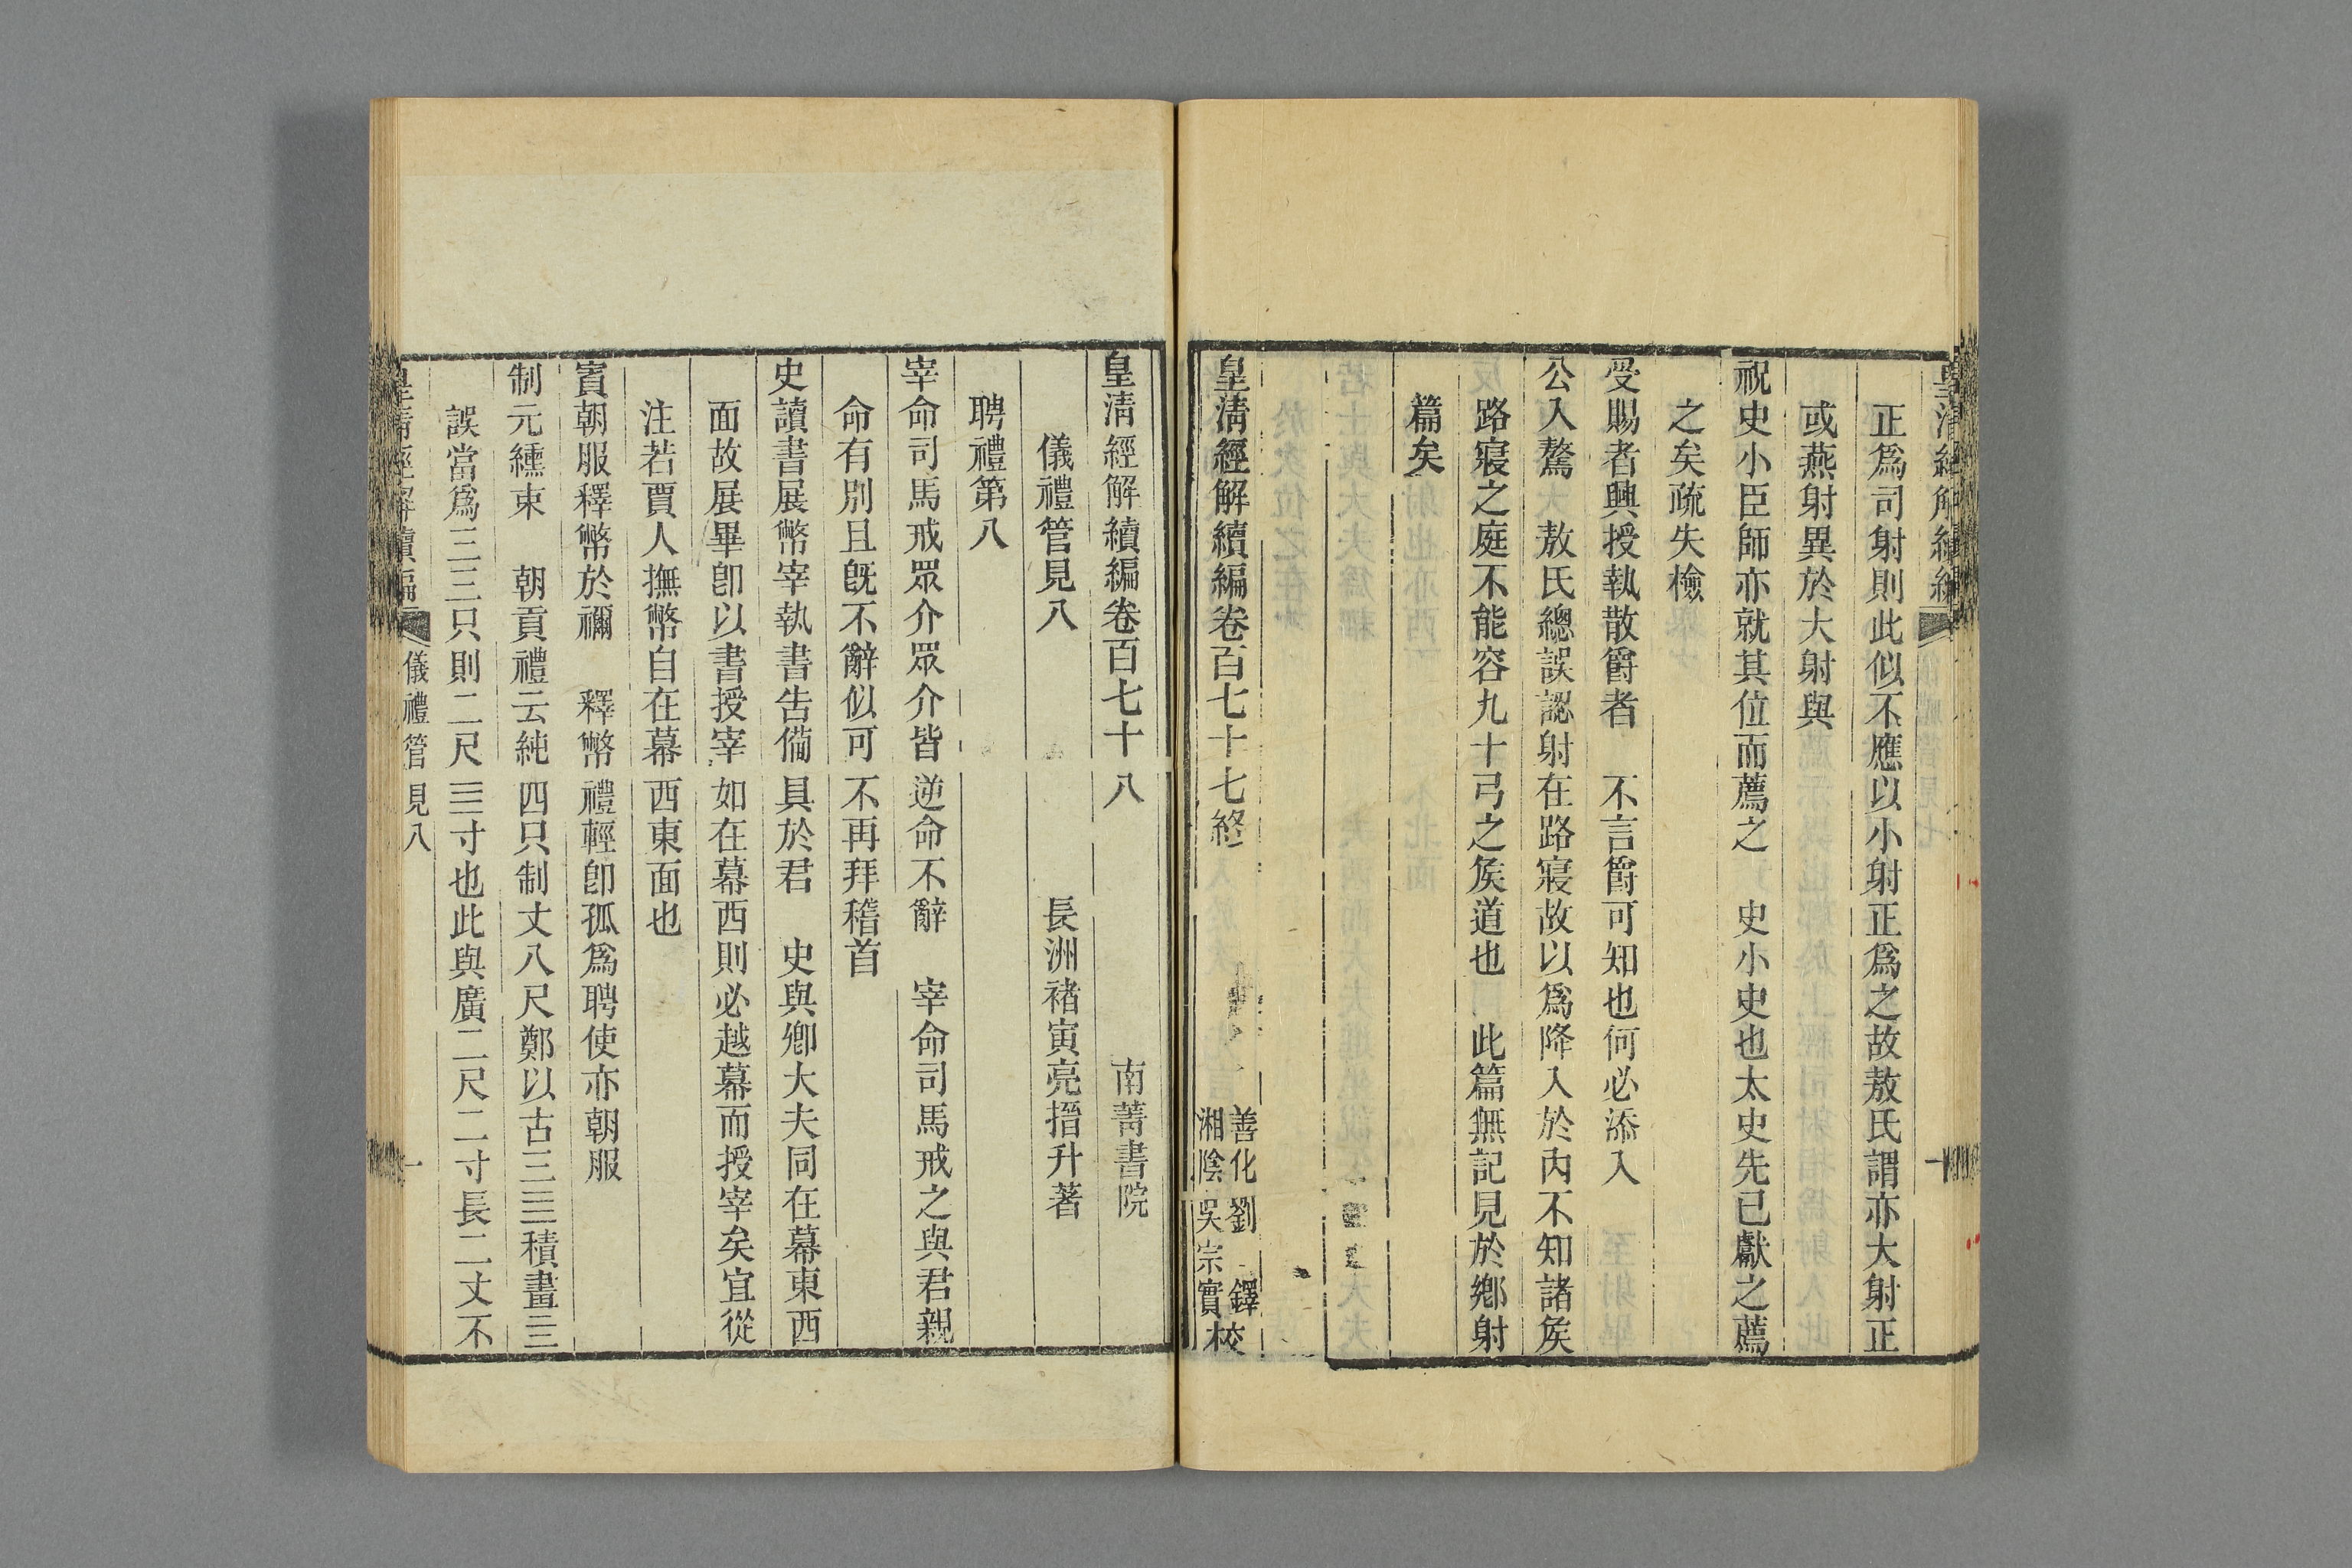 正爲司射則此似不應以小射正爲之故敖氏謂亦大射正
或燕射異於大射與
祝史小臣師亦就其位而薦之　史小史也太史先已獻之薦
之矣疏失檢
受賜者興授執散爵者　不言爵可知也何必添入
公入驁　敖氏總誤認射在路寢故以爲降入於內不知諸矦
路寢之庭不能容九十弓之矦道也　此篇無記見於鄉射
篇矣
皇淸經解續編卷百七十七終
善化劉　鐸
湘陰吳宗實校
皇淸經解續編卷百七十八
南菁書院
儀禮管見八
長洲褚寅亮搢升著
聘禮第八
宰命司馬戒眾介眾介皆逆命不辭　宰命司馬戒之與君親
命有別且旣不辭似可不再拜稽首
史讀書展幣宰執書告備具於君　史與卿大夫同在幕東西
面故展畢卽以書授宰如在幕西則必越幕而授宰矣宜從
注若賈人撫幣自在幕西東面也
賓朝服釋幣於禰　釋幣禮輕卽孤爲聘使亦朝服
制元纁束　朝貢禮云純四只制丈八尺鄭以古三亖積畫三
誤當爲三三只則二尺亖寸也此與廣二尺二寸長二丈不
皇淸經解續編
儀禮管見八
一